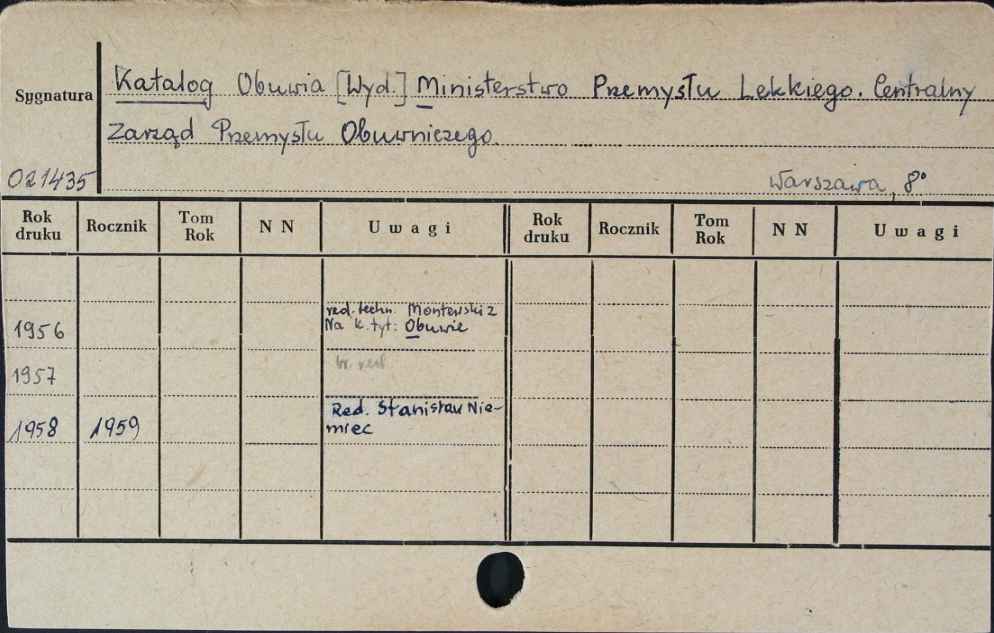 Sygnatura
Katalog Obuwia [Wyd.] Ministerstwo Przemysłu Lekkiego. Centralny
Zarząd Przemysłu Obuwniczego.
021435
Warszawa, 8°
Rok druku Rocznik Tom Rok NN Uwagi Rok druku Rocznik Tom Rok NN Uwagi
1956 red. techn. Montewski z
Na k. tyt: Obuwie
1957 br. red.
1958 1959 Red. Stanisław Nie-
miec